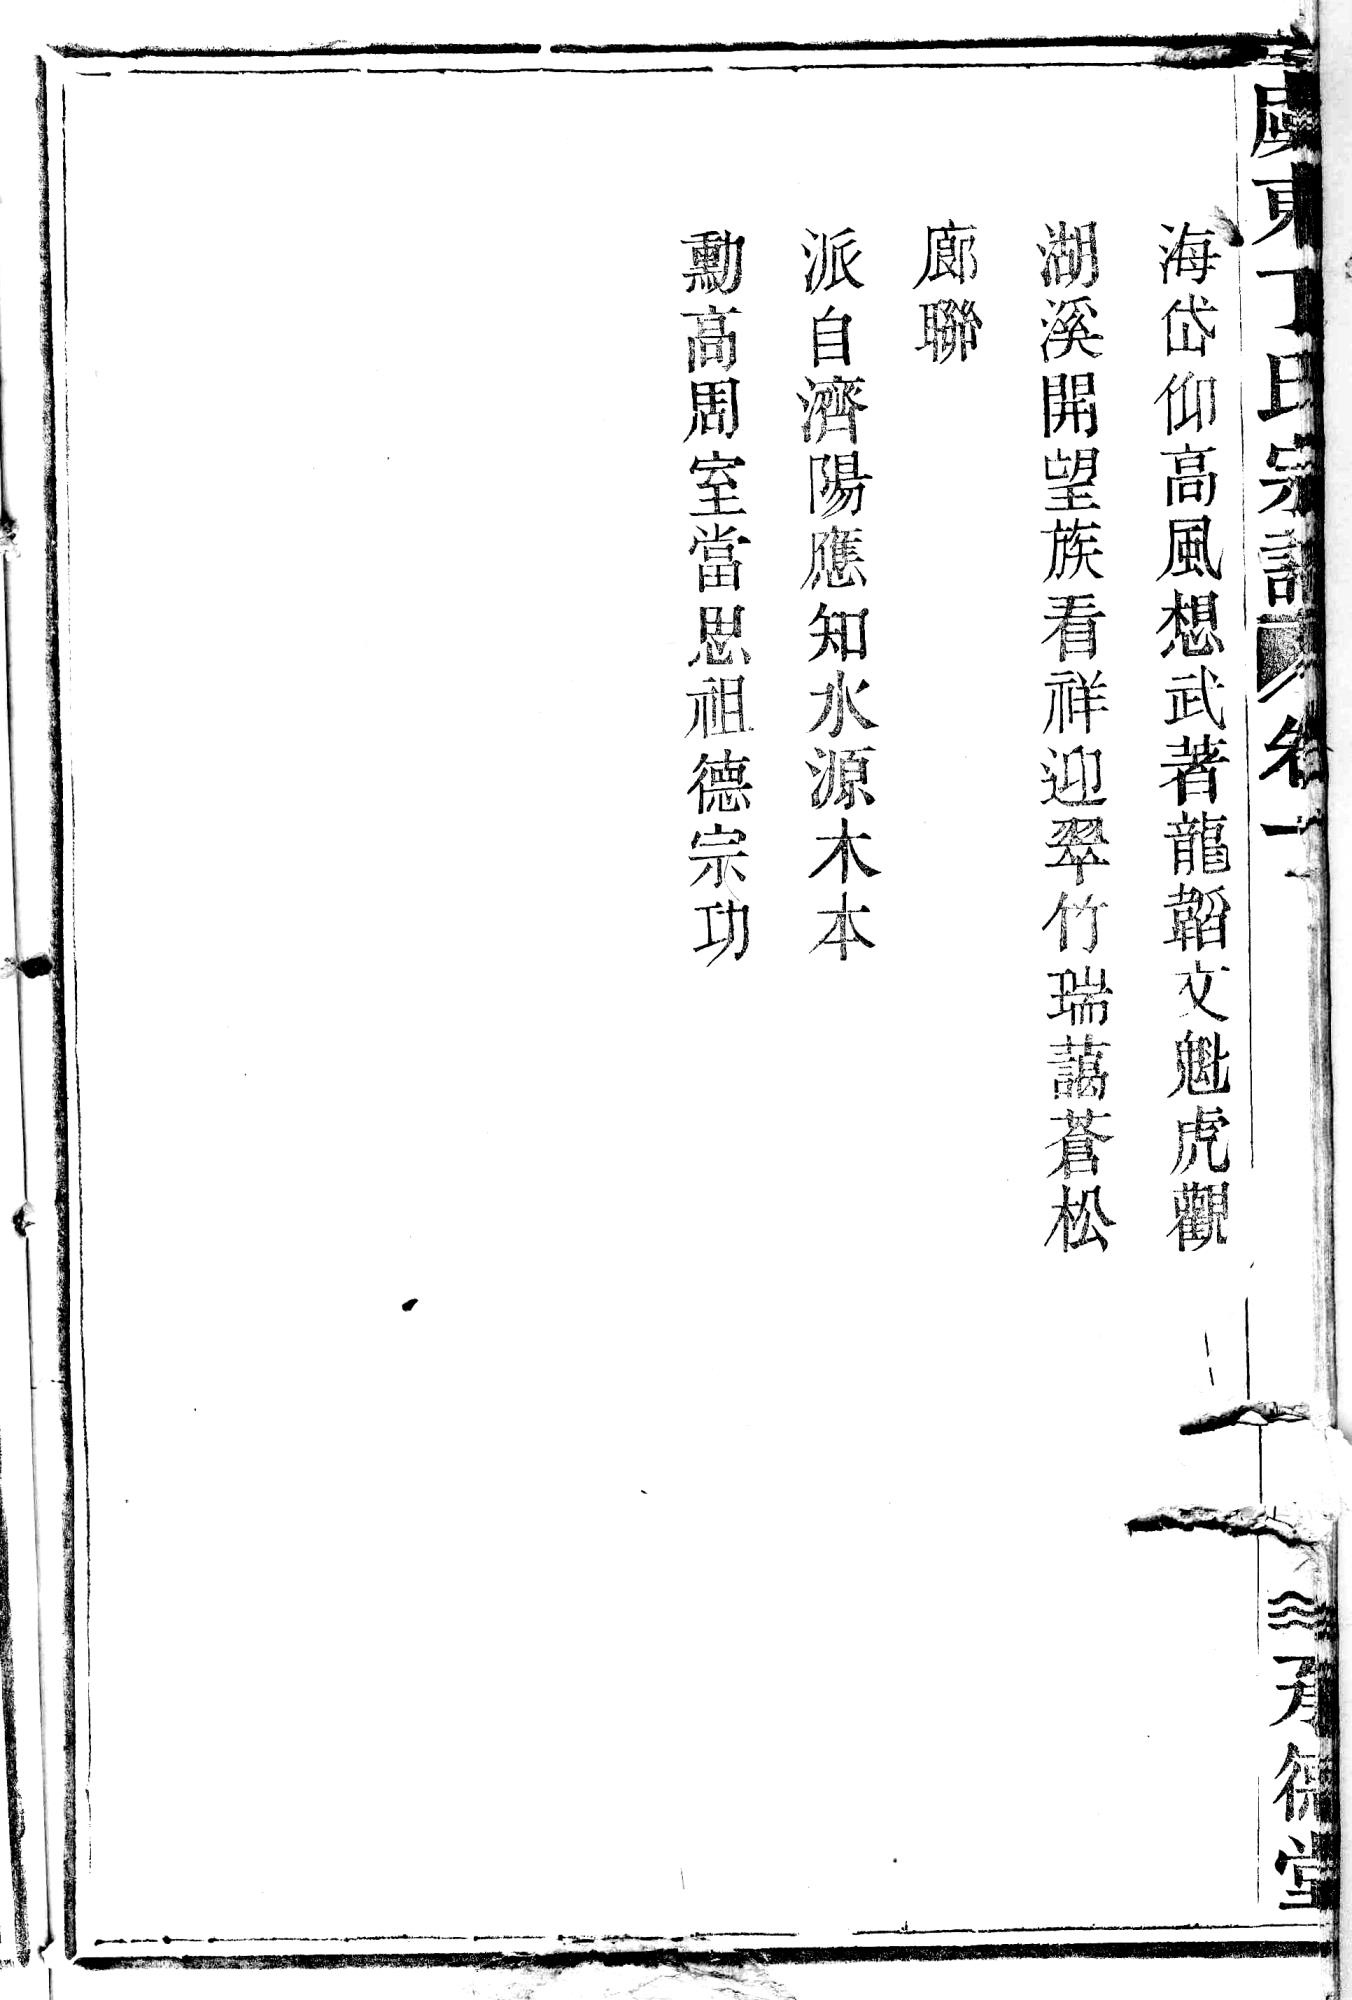 東丁氏宗譜 卷一 承德堂
海岱仰高風想武著龍韜文魁虎觀
湖溪開望族看祥迎翠竹瑞藹蒼松
廊聯
派自濟陽應知水源木本
勳高周室當思祖德宗功